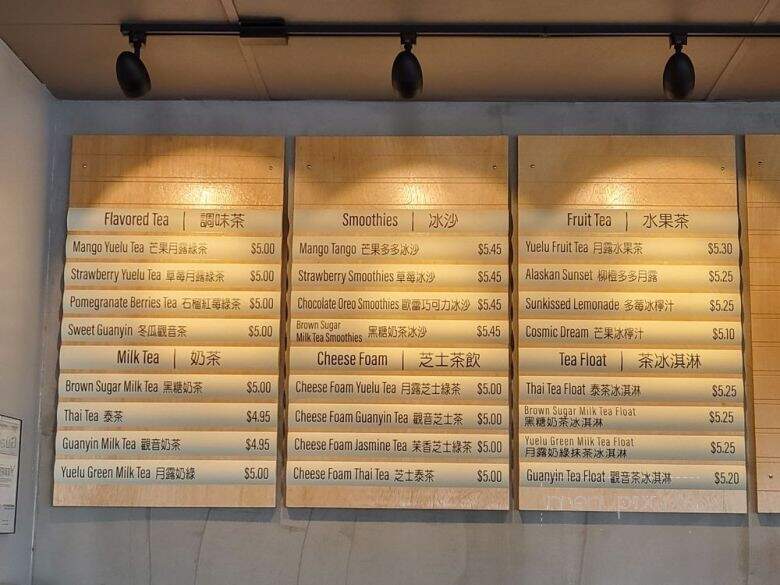 Flavored Tea | 調味茶
Mango Yuelu Tea 芒果月露綠茶 $5.00
Strawberry Yuelu Tea 草莓月露綠茶 $5.00
Pomegranate Berries Tea 石榴紅莓綠茶 $5.00
Sweet Guanyin 冬瓜觀音茶 $5.00
Milk Tea | 奶茶
Brown Sugar Milk Tea 黑糖奶茶 $5.00
Thai Tea 泰茶 $4.95
Guanyin Milk Tea 觀音奶茶 $4.95
Yuelu Green Milk Tea 月露奶綠 $5.00
Smoothies | 冰沙
Mango Tango 芒果多多冰沙 $5.45
Strawberry Smoothies 草莓冰沙 $5.45
Chocolate Oreo Smoothies 歐雷巧可力冰沙 $5.45
Brown Sugar
Milk Tea Smoothies 黑糖奶茶冰沙 $5.45
Cheese Foam | 芝士茶飲
Cheese Foam Yuelu Tea 月露芝士綠茶 $5.00
Cheese Foam Guanyin Tea 觀音芝士茶 $5.00
Cheese Foam Jasmine Tea 茉香芝士綠茶 $5.00
Cheese Foam Thai Tea 芝士泰茶 $5.00
Fruit Tea | 水果茶
Yuelu Fruit Tea 月露水果茶 $5.30
Alaskan Sunset 柳橙多多月露 $5.25
Sunkissed Lemonade 多莓冰檸汁 $5.25
Cosmic Dream 芒果冰檸汁 $5.10
Tea Float | 茶冰淇淋
Thai Tea Float 泰茶冰淇淋 $5.25
Brown Sugar Milk Tea Float
黑糖奶茶冰淇淋 $5.25
Yuelu Green Milk Tea Float
月露奶綠抹茶冰淇淋 $5.25
Guanyin Tea Float 觀音茶冰淇淋 $5.20